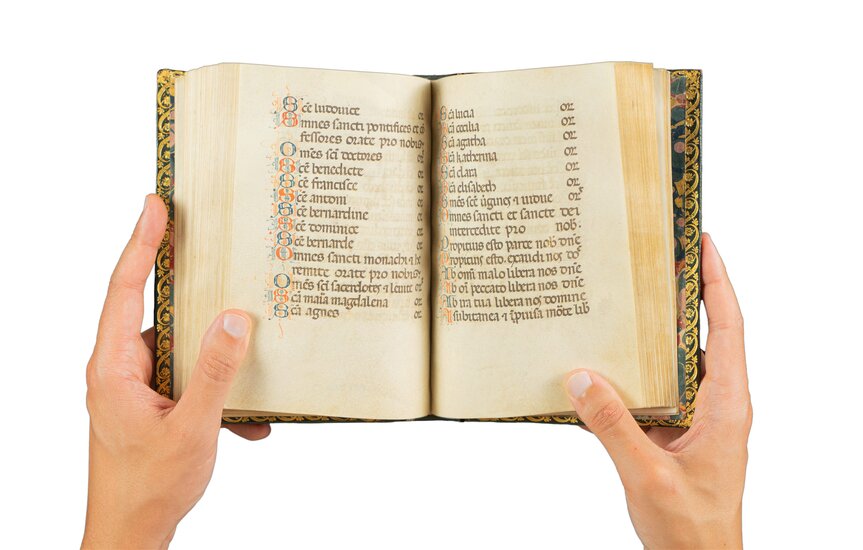 Sce ludovice or
Omnes sancti pontifices et cō
fessores orate pro nobis
Omēs sci doctores or
Sce benedicte or
Sce francisce or
Sce antoni or
Sce bernardine or
Sce dominice or
Sce bernarde or
Omnes sancti monachi et he
remite orate pro nobis
Omēs sci sacerdotes et levite or
Sca maria magdalena or
Sca agnes or
Sca lucia or
Sca cecilia or
Sca agatha or
Sca katherina or
Sca clara or
Sca elisabeth or
Omēs scē ūgines ⁊ vidue or
Omnes sancti et sancte dei
intercedite pro nob
Propitius esto parce nob dnē
Propitius esto exaudi nos
Ab omī malo libera nos dnē
Ab oī peccato libera nos dnē
Ab ira tua libera nos domine
A subitanea ⁊ ī̄pvisa morte lib